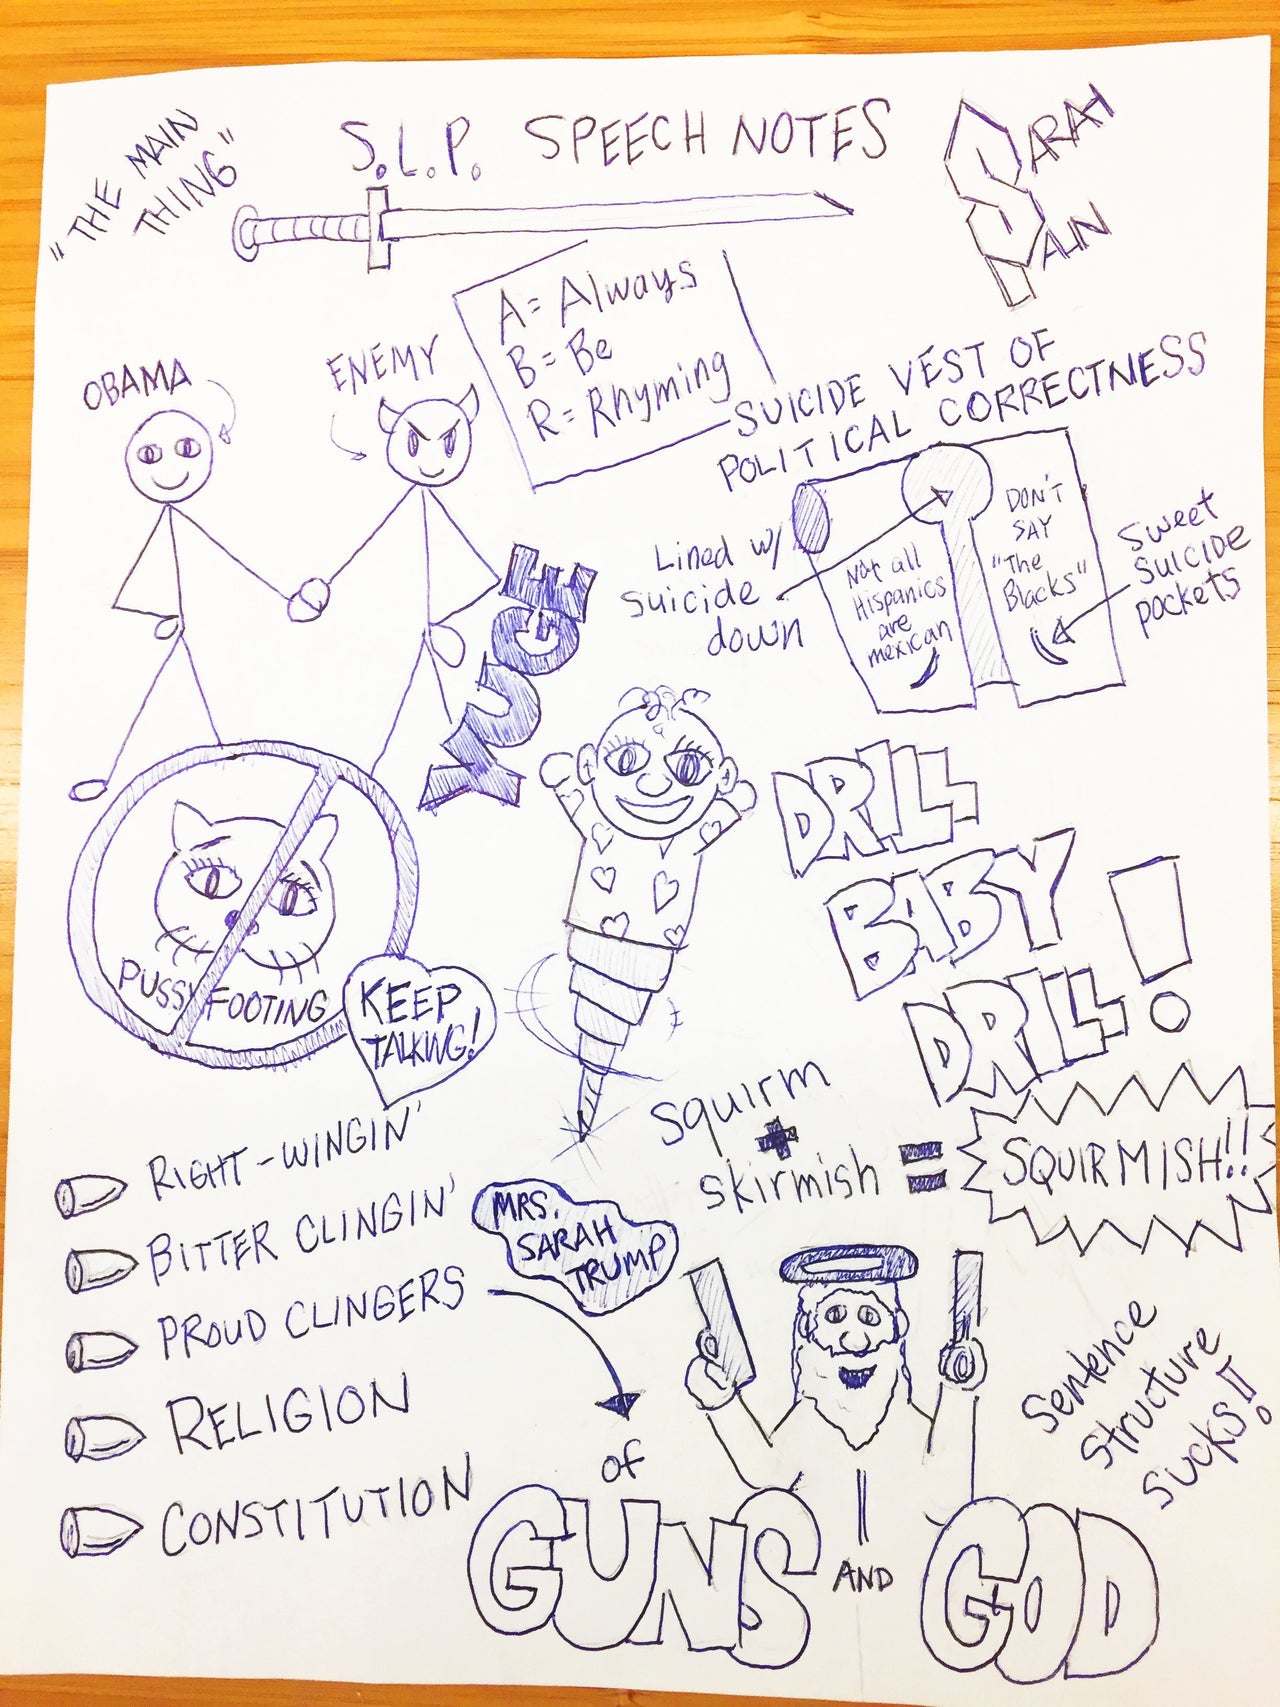 "THE MAIN
THING"
S.L.P. SPEECH NOTES
SARAH
PALIN
A= Always
B= Be
R= Rhyming
OBAMA
ENEMY
SUICIDE VEST OF
POLITICAL CORRECTNESS
Lined w/
suicide
down
Not all
Hispanics
are
mexican
DON'T
SAY
"The
Blacks"
Sweet
SUICIDE
pockets
YUGE
DRILL
BABY
DRILL!
PUSSY FOOTING
KEEP
TALKING!
squirm
+
skirmish = SQUIRMISH!!
RIGHT-WINGIN'
BITTER CLINGIN'
PROUD CLINGERS
RELIGION
CONSTITUTION
MRS.
SARAH
TRUMP
of
GUNS AND GOD
Sentence
Structure
Sucks!!